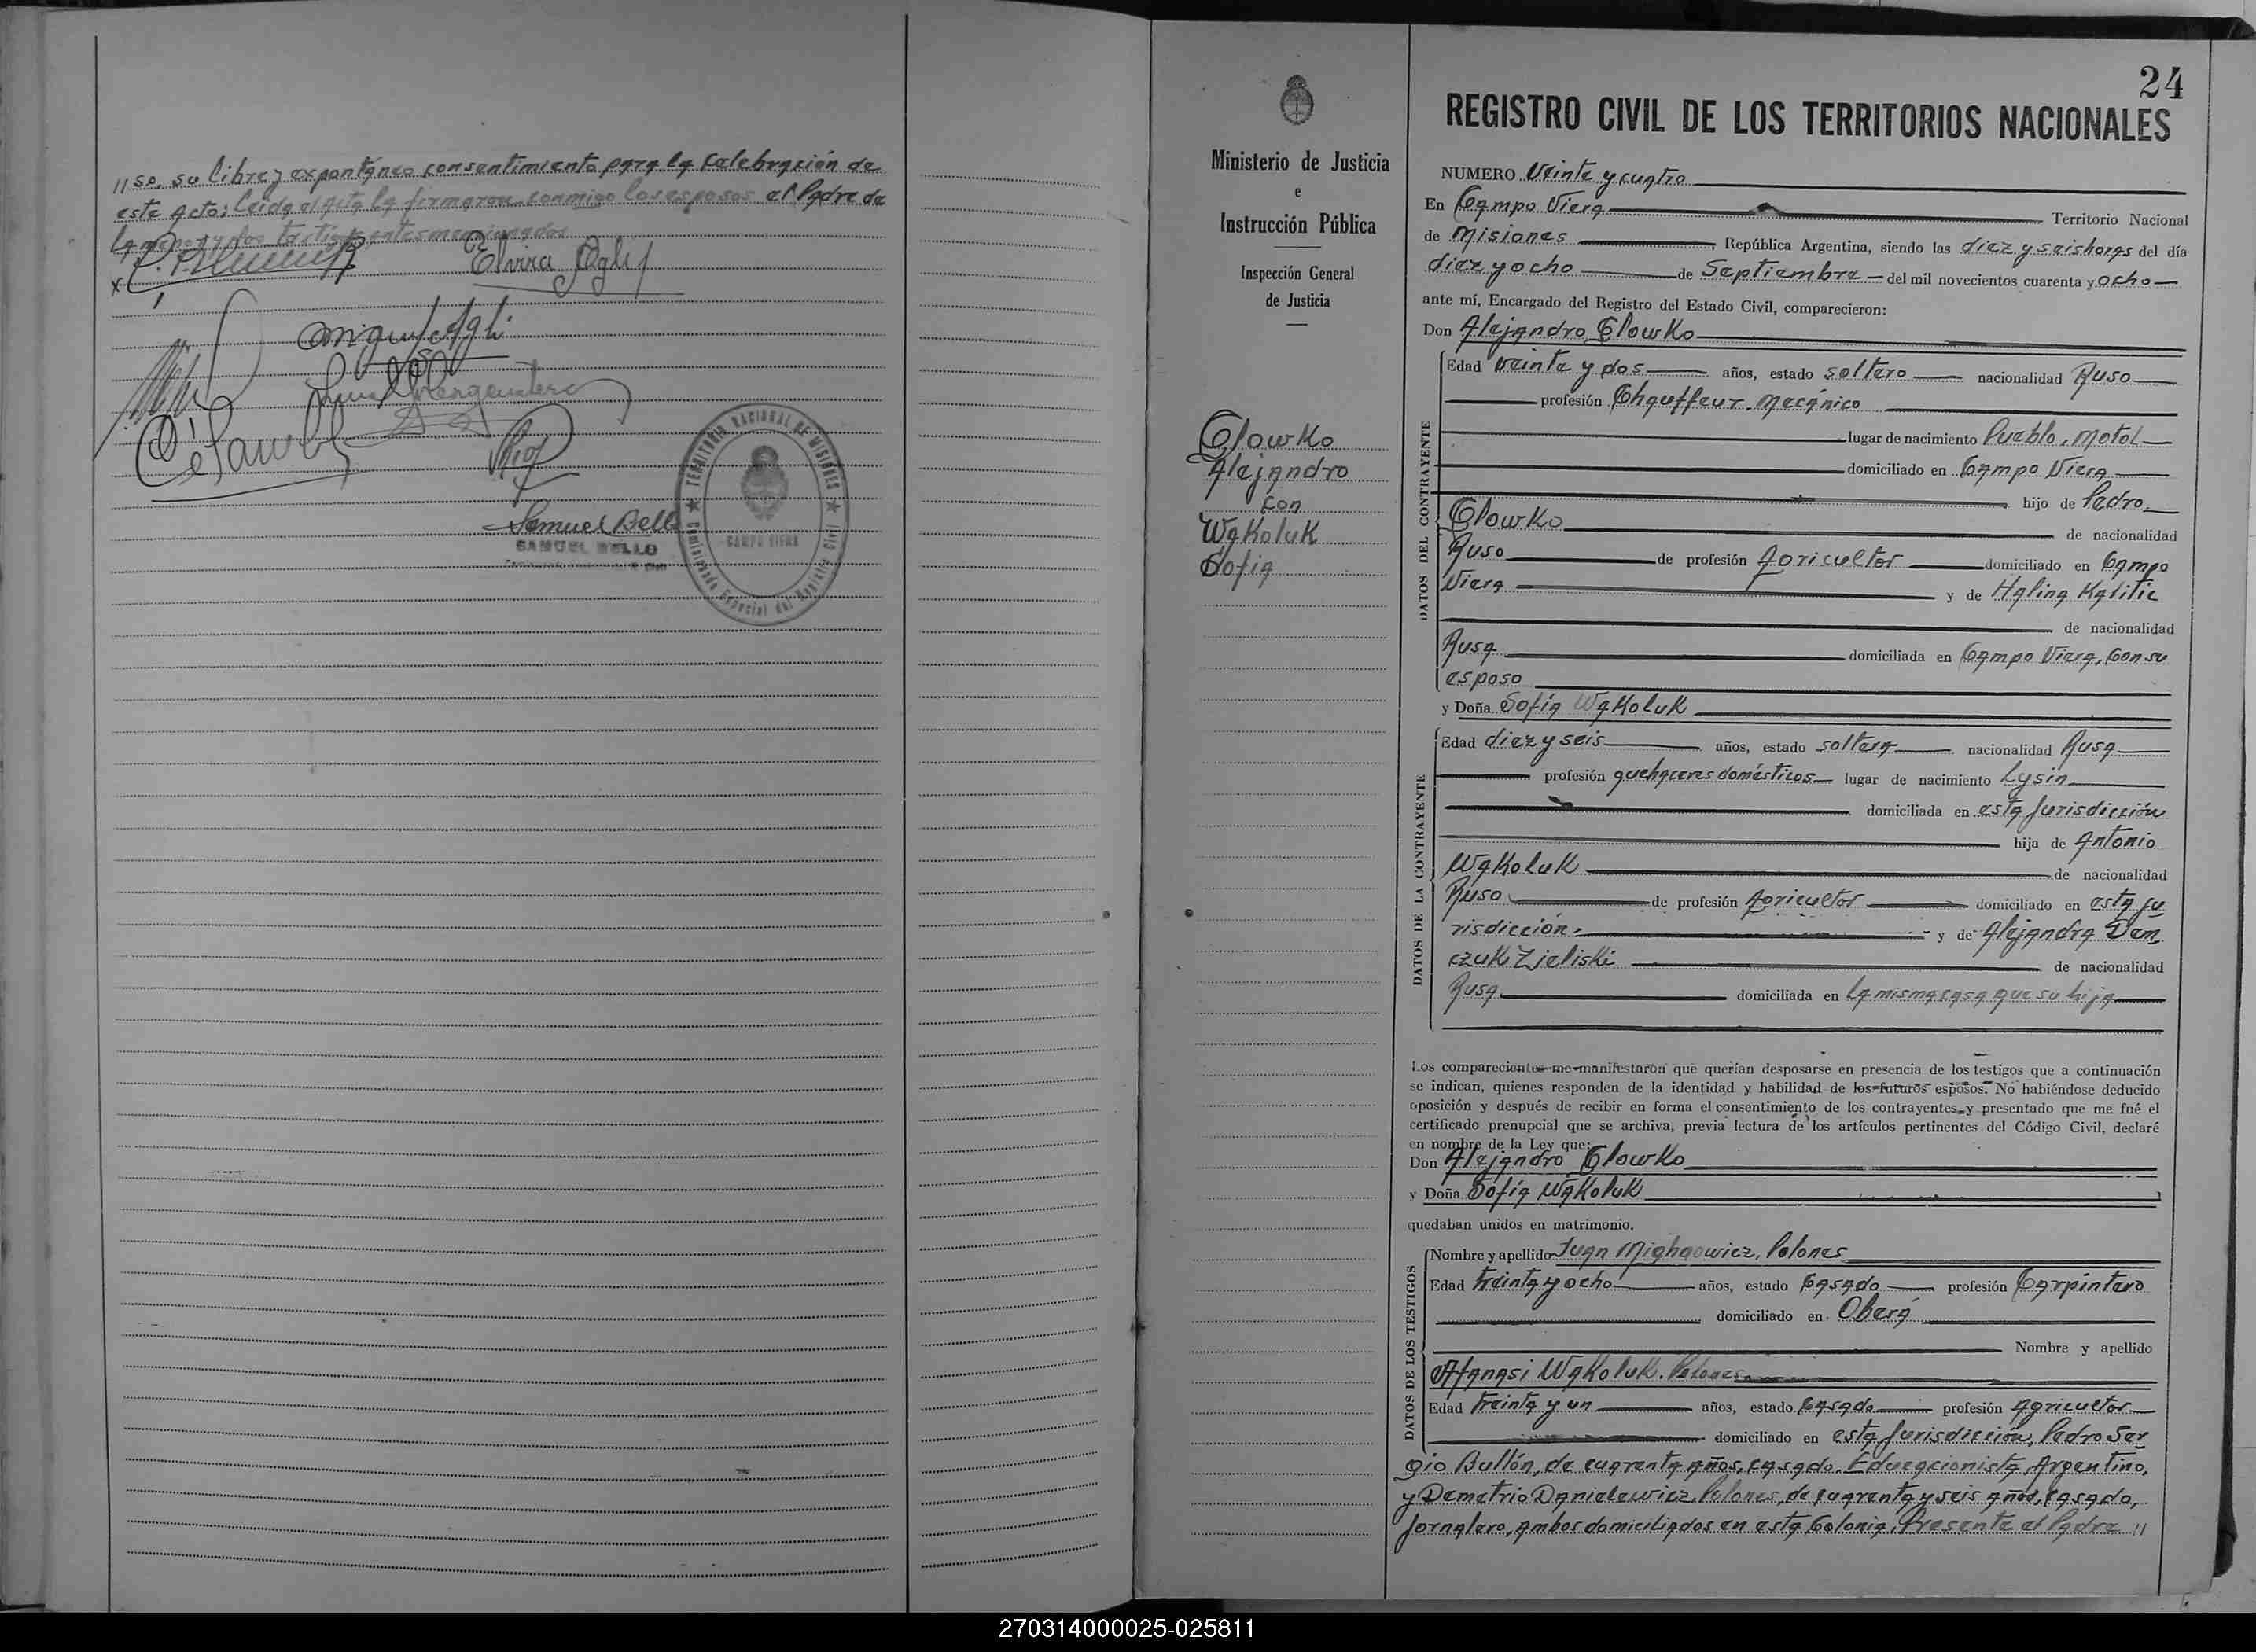 //so, su libre y expontáneo consentimiento para la celebración de
este acto; leída el acta la firmaron conmigo los esposos el Padre de
la menor y los testigos antes mencionados
Elvira Ogly
Samuel Bello
SAMUEL BELLO
TERRITORIO NACIONAL DE MISIONES
CAMPO VIERA
24
Ministerio de Justicia
e
Instrucción Pública
Inspección General
de Justicia
Glowko
Alejandro
con
Wakoluk
Sofia
REGISTRO CIVIL DE LOS TERRITORIOS NACIONALES
NUMERO Veinte y cuatro
En Campo Viera Territorio Nacional
de Misiones República Argentina, siendo las diez y seis horas del día
diez y ocho de Septiembre del mil novecientos cuarenta y ocho
ante mí, Encargado del Registro del Estado Civil, comparecieron:
Don Alejandro Glowko
DATOS DEL CONTRAYENTE
Edad veinte y dos años, estado soltero nacionalidad Ruso
profesión Chauffeur. Mecánico
lugar de nacimiento Pueblo, Motol
domiciliado en Campo Viera
hijo de Pedro
Glowko de nacionalidad
Ruso de profesión Agricultor domiciliado en Campo
Viera y de Halina Kalitic
de nacionalidad
Rusa domiciliada en Campo Viera, con su
esposo
y Doña Sofía Wakoluk
DATOS DE LA CONTRAYENTE
Edad diez y seis años, estado soltera nacionalidad Rusa
profesión quehaceres domésticos lugar de nacimiento Lysin
domiciliada en esta Jurisdicción
hija de Antonio
Wakoluk de nacionalidad
Ruso de profesión Agricultor domiciliado en esta ju
risdicción. y de Alejandra Dem
czuk Zieliski de nacionalidad
Rusa domiciliada en la misma casa que su hija
Los comparecientes me manifestaron que querían desposarse en presencia de los testigos que a continuación
se indican, quienes responden de la identidad y habilidad de los futuros esposos. No habiéndose deducido
oposición y después de recibir en forma el consentimiento de los contrayentes y presentado que me fué el
certificado prenupcial que se archiva, previa lectura de los artículos pertinentes del Código Civil, declaré
en nombre de la Ley que:
Don Alejandro Glowko
y Doña Sofía Wakoluk
quedaban unidos en matrimonio.
DATOS DE LOS TESTIGOS
Nombre y apellido Juan Mighaowicz, Polones
Edad treinta y ocho años, estado Casado profesión Carpintero
domiciliado en Oberá
Nombre y apellido
Afanasi Wakoluk. Polones
Edad treinta y un años, estado Casado profesión Agricultor
domiciliado en esta Jurisdicción, Pedro Ser
gio Bullón, de cuarenta años, casado. Educacionista, Argentino,
y Demetrio Danielewicz, Polones, de cuarenta y seis años, casado,
Jornalero, ambos domiciliados en esta Colonia. Presente el Padre //
270314000025-025811